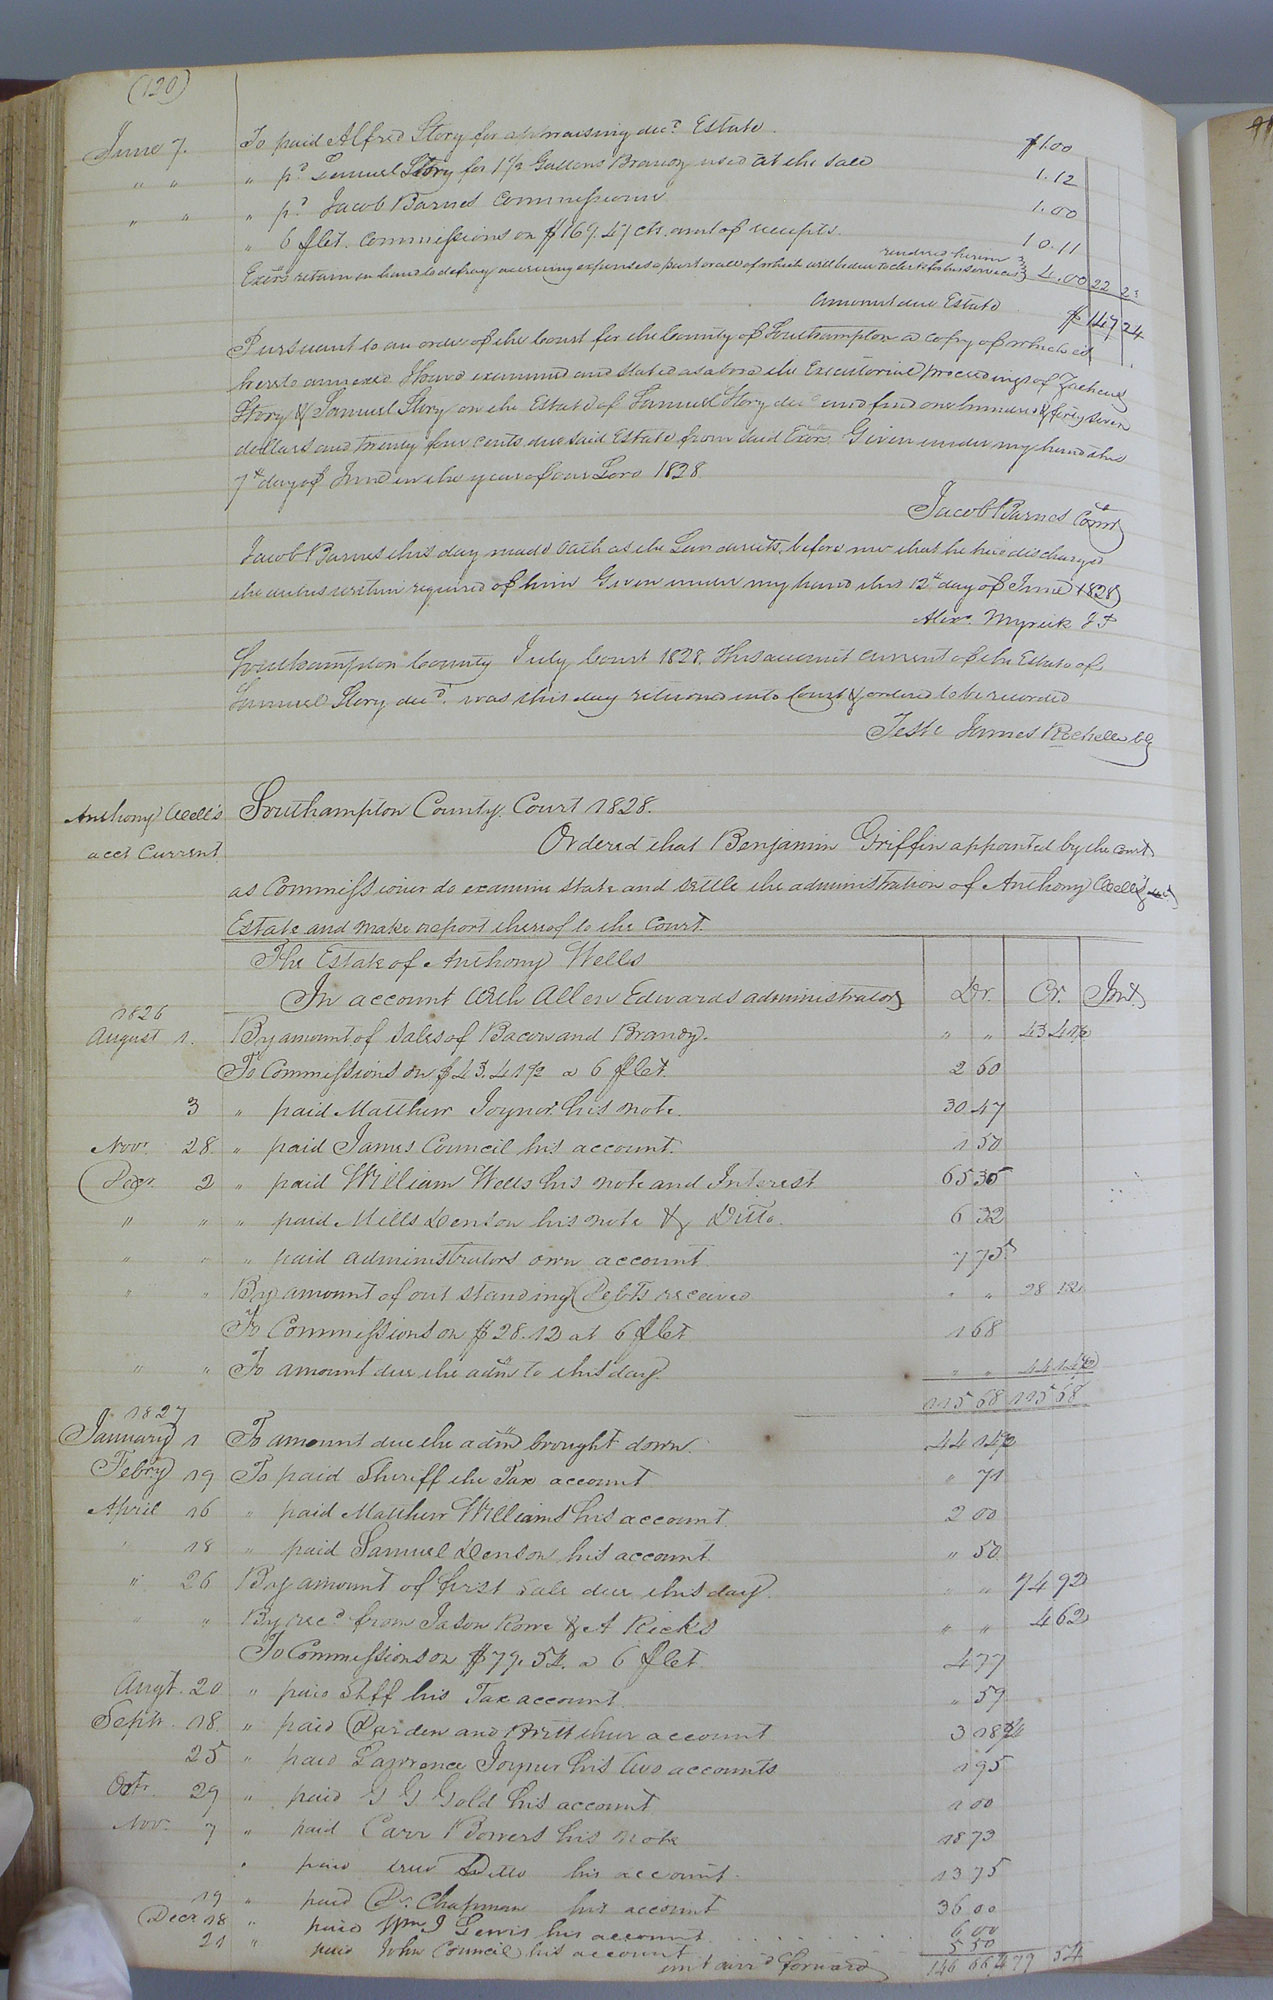 (120)
June 7. To paid Alfred Story for appraising decd Estate. $1.00
" " " pd Samuel Story for 1 1/2 Gallons Brandy used at the sale 1.12
" " " pd Jacob Barnes Commissioner 1.00
" 6 pCet. Commissions on $169.47 cts. amt of receipts. 10.11
Exors retain in hand to defray accruing expenses a part or all of which will be due to clerk for his services rendered herein 4.00 22 23
Amount due Estate $ 147 24
Pursuant to an order of the Court for the County of Southampton a copy of which is
hereto annexed I have examined and stated as above the Executorial proceedings of Zacheus
Story & Samuel Story on the Estate of Samuel Story decd and find one hundred & forty seven
dollars and twenty four cents due said Estate from said Exors. Given under my hand this
7th day of June in the year of our Lord 1828
Jacob Barnes Comr
Jacob Barnes this day made oath as the Law directs, before me that he has discharged
the duties within required of him Given under my hand this 12th day of June 1828
Alexr. Myrick J P
Southampton County July Court 1828. This account current of the Estate of
Samuel Story decd. was this day returned into Court & ordered to be recorded
Teste James Rochelle Clk
Anthony Well's
acct Current
Southampton County. Court 1828.
Ordered that Benjamin Griffin appointed by the court
as Commissioner do examine state and settle the administration of Anthony Well's
Estate and make report thereof to the Court.
The Estate of Anthony Wells
In account With Allen Edwards administrator Dr. Cr. Int.
1826
August 1. By amount of sales of Bacon and Brandy. " " 43 41 1/2
To Commissions on $43.41 1/2 a 6 pCet. 2 60
3 " paid Matthew Joyner his note. 30 47
Novr 28. " paid James Council his account. 1 50
Decr. 2 " paid William Wells his note and Interest 65 35
" " " paid Mills Denson his note & Ditto. 6 32
" " " paid administrators own account 7 75
" " By amount of out standing Debts received " " 28 12
To Commissions on $28.12 at 6 pCet 1 68
" " To amount due the admr to this day. " " 44 14 1/2
115 68 115 68
1827
January 1 To amount due the admr brought down. 44 14 1/2
Febry 19 To paid Sheriff the Tax account " 71
April 16 " paid Matthew Williams his account 2 00
" 18 " paid Samuel Denson his account " 50
" 26 By amount of first sale due this day. " " 74 92
" " By recd from Jason Rowe & A Ricks " " 4 62
To Commissions on $79.54. a 6 pCet. 4 77
Augt. 20 " paid Shff his Tax account " 59
Septr. 18. " paid Darden and Britt their account 3 18 3/4
25 " paid Lawrence Joyner his two accounts 1 95
Octr. 29 " paid G G Gold his account 1 00
Nov. 7 " paid Carr Bowers his note 18 73
" paid Ditto his account. 13 75
19 " paid Dr. Chapman his account 36 00
Decr 18 " paid Wm J Lewis his account 6 00
21 " paid John Council his account 5 50
amt carrd forward 146 66 1/4 79 54